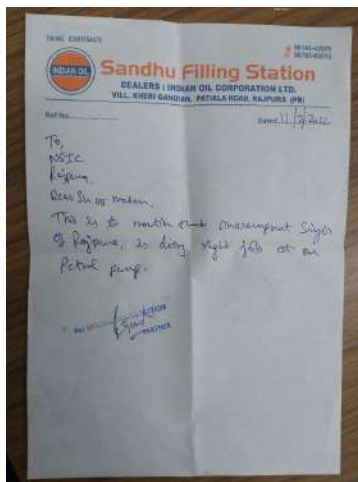 INDIAN OIL
Sandhu Filling Station
DEALERS : INDIAN OIL CORPORATION LTD.
VILL. KHERI GANDIAN, PATIALA ROAD, RAJPURA (PB)
Ref No.
Dated 11/2/2022
To,
NSIC
Rajpura.
Dear Sir or Madam,
This is to mention that Singh
of Rajpura, is doing right job at our
Petrol pump.
PARTNER